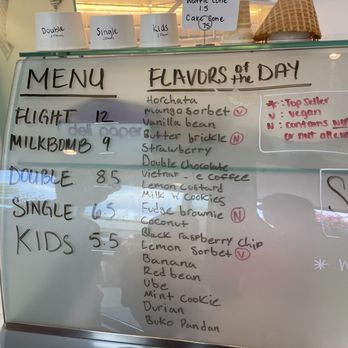 Waffle Cone
1.5
Cake Cone
.75
Double
Single
Kids
MENU
FLIGHT 12
MILKBOMB 9
DOUBLE 8.5
SINGLE 6.5
KIDS 5.5
deli paper
FLAVORS of the DAY
Horchata
mango sorbet V
Vanilla bean
Butter brickle N
Strawberry
Double Chocolate
Vietnam-e coffee
Lemon custard
Milk n cookies
Fudge brownie N
Coconut
Black raspberry chip
Lemon Sorbet V
Banana
Red bean
Ube
Mint cookie
Durian
Buko Pandan
* : Top Seller
V : vegan
N : contains
or nut